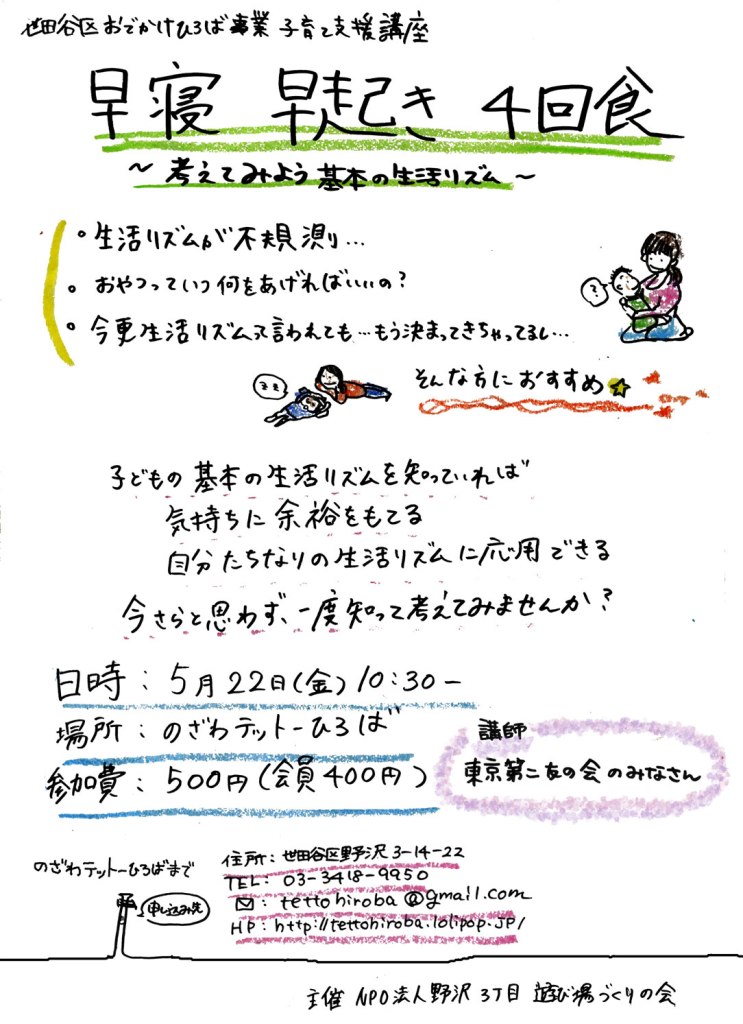 世田谷区おでかけひろば事業 子育て支援講座
早寝 早起き 4回食
～考えてみよう基本の生活リズム～
・生活リズムが不規測り…
・おやつっていつ何をあげればいいの?
・今更生活リズムって言われても…もう決まってきちゃってるし…
?
zzz
そんな方におすすめ☆
子どもの基本の生活リズムを知っていれば
気持ちに余裕をもてる
自分たちなりの生活リズムに応用できる
今さらと思わず、一度知って考えてみませんか?
日時:5月22日(金)10:30―
場所:のざわテットーひろば
参加費:500円(会員400円)
講師
東京第二友の会のみなさん
のざわテットーひろばまで
申し込み先
住所:世田谷区野沢3-14-22
TEL:03-3418-9950
✉:tettohiroba@gmail.com
HP:http://tettohiroba.lolipop.jp/
主催 NPO法人野沢3丁目遊び場づくりの会